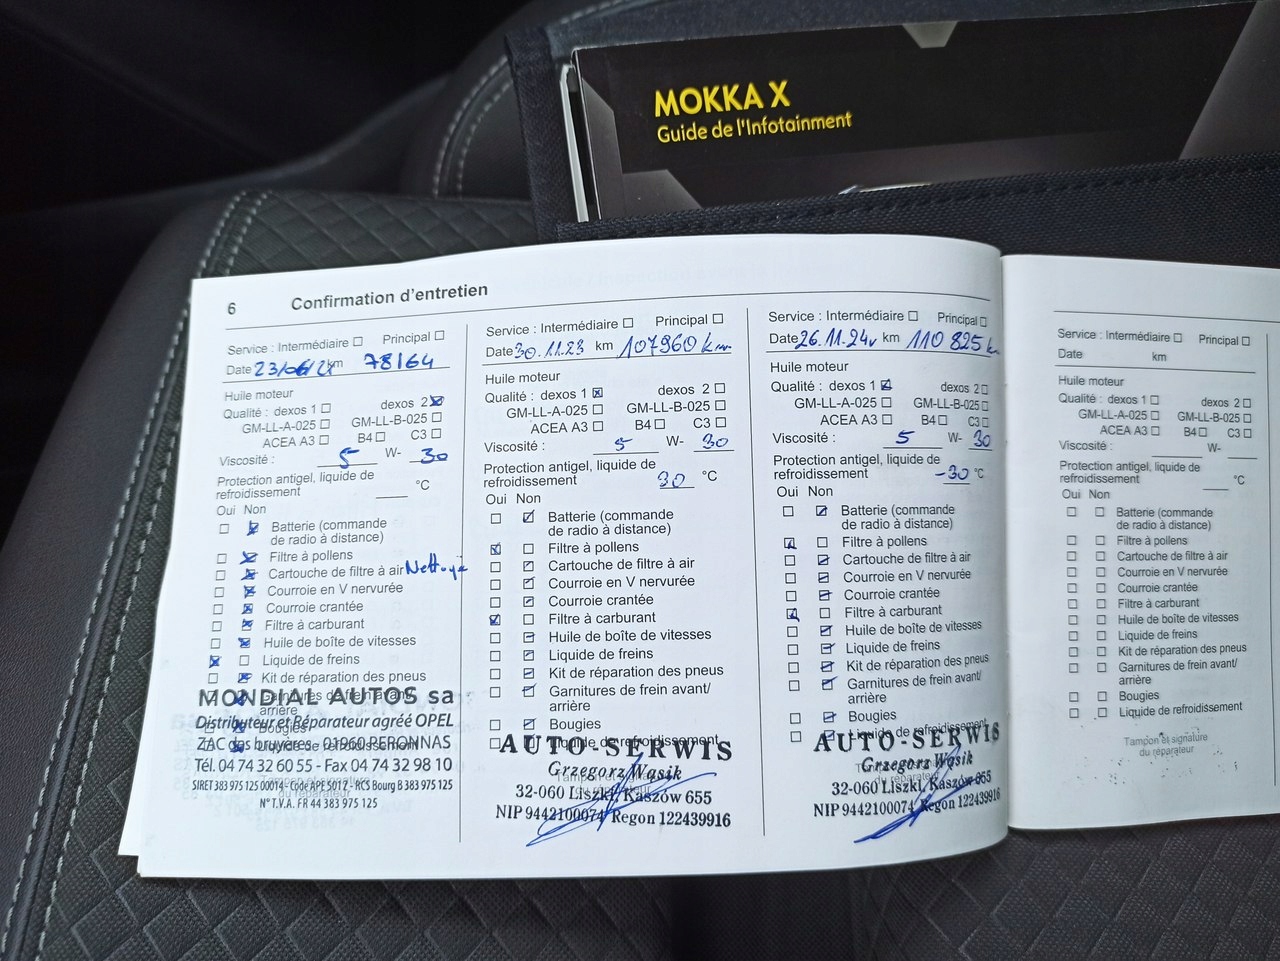 MOKKA X
Guide de l'Infotainment
6 Confirmation d'entretien
Service : Intermédiaire ☐ Principal ☐
Date 23/06/21 km 78164
Huile moteur
Qualité : dexos 1 ☐ dexos 2 ☒
GM-LL-A-025 ☐ GM-LL-B-025 ☐
ACEA A3 ☐ B4 ☐ C3 ☐
Viscosité : 5 W- 30
Protection antigel, liquide de
refroidissement °C
Oui Non
☐ ☒ Batterie (commande
de radio à distance)
☐ ☒ Filtre à pollens
☐ ☒ Cartouche de filtre à air Nettoyé
☐ ☒ Courroie en V nervurée
☐ ☒ Courroie crantée
☐ ☒ Filtre à carburant
☐ ☒ Huile de boîte de vitesses
☒ ☐ Liquide de freins
☐ ☒ Kit de réparation des pneus
Garnitures de frein avant/
arrière
Bougies
Liquide de refroidissement
Tampon et signature
du réparateur
MONDIAL AUTOS sa
Distributeur et Réparateur agréé OPEL
ZAC des bruyères - 01960 PERONNAS
Tél. 04 74 32 60 55 - Fax 04 74 32 98 10
SIRET 383 975 125 00014 - Code APE 501Z - RCS Bourg B 383 975 125
N° T.V.A. FR 44 383 975 125
Service : Intermédiaire ☐ Principal ☐
Date 30.11.23 km 107960 km
Huile moteur
Qualité : dexos 1 ☒ dexos 2 ☐
GM-LL-A-025 ☐ GM-LL-B-025 ☐
ACEA A3 ☐ B4 ☐ C3 ☐
Viscosité : 5 W- 30
Protection antigel, liquide de
refroidissement 30 °C
Oui Non
☐ ☑ Batterie (commande
de radio à distance)
☑ ☐ Filtre à pollens
☐ ☑ Cartouche de filtre à air
☐ ☑ Courroie en V nervurée
☐ ☑ Courroie crantée
☑ ☐ Filtre à carburant
☐ ☑ Huile de boîte de vitesses
☐ ☑ Liquide de freins
☐ ☑ Kit de réparation des pneus
☐ ☑ Garnitures de frein avant/
arrière
☐ ☑ Bougies
Liquide de refroidissement
Tampon et signature
du réparateur
AUTO-SERWIS
Grzegorz Wąsik
32-060 Liszki, Kaszów 655
NIP 9442100074 Regon 122439916
Service : Intermédiaire ☐ Principal ☐
Date 26.11.24r km 110 825 k
Huile moteur
Qualité : dexos 1 ☑ dexos 2 ☐
GM-LL-A-025 ☐ GM-LL-B-025 ☐
ACEA A3 ☐ B4 ☐ C3 ☐
Viscosité : 5 W- 30
Protection antigel, liquide de
refroidissement -30 °C
Oui Non
☐ ☑ Batterie (commande
de radio à distance)
☑ ☐ Filtre à pollens
☐ ☑ Cartouche de filtre à air
☐ ☑ Courroie en V nervurée
☐ ☑ Courroie crantée
☑ ☐ Filtre à carburant
☐ ☑ Huile de boîte de vitesses
☐ ☑ Liquide de freins
☐ ☑ Kit de réparation des pneus
☐ ☑ Garnitures de frein avant/
arrière
☐ ☑ Bougies
Liquide de refroidissement
Tampon et signature
du réparateur
AUTO-SERWIS
Grzegorz Wąsik
32-060 Liszki, Kaszów 655
NIP 9442100074 Regon 122439916
Service : Intermédiaire ☐ Principal ☐
Date km
Huile moteur
Qualité : dexos 1 ☐ dexos 2 ☐
GM-LL-A-025 ☐ GM-LL-B-025 ☐
ACEA A3 ☐ B4 ☐ C3 ☐
Viscosité : W-
Protection antigel, liquide de
refroidissement °C
Oui Non
☐ ☐ Batterie (commande
de radio à distance)
☐ ☐ Filtre à pollens
☐ ☐ Cartouche de filtre à air
☐ ☐ Courroie en V nervurée
☐ ☐ Courroie crantée
☐ ☐ Filtre à carburant
☐ ☐ Huile de boîte de vitesses
☐ ☐ Liquide de freins
☐ ☐ Kit de réparation des pneus
☐ ☐ Garnitures de frein avant/
arrière
☐ ☐ Bougies
☐ ☐ Liquide de refroidissement
Tampon et signature
du réparateur